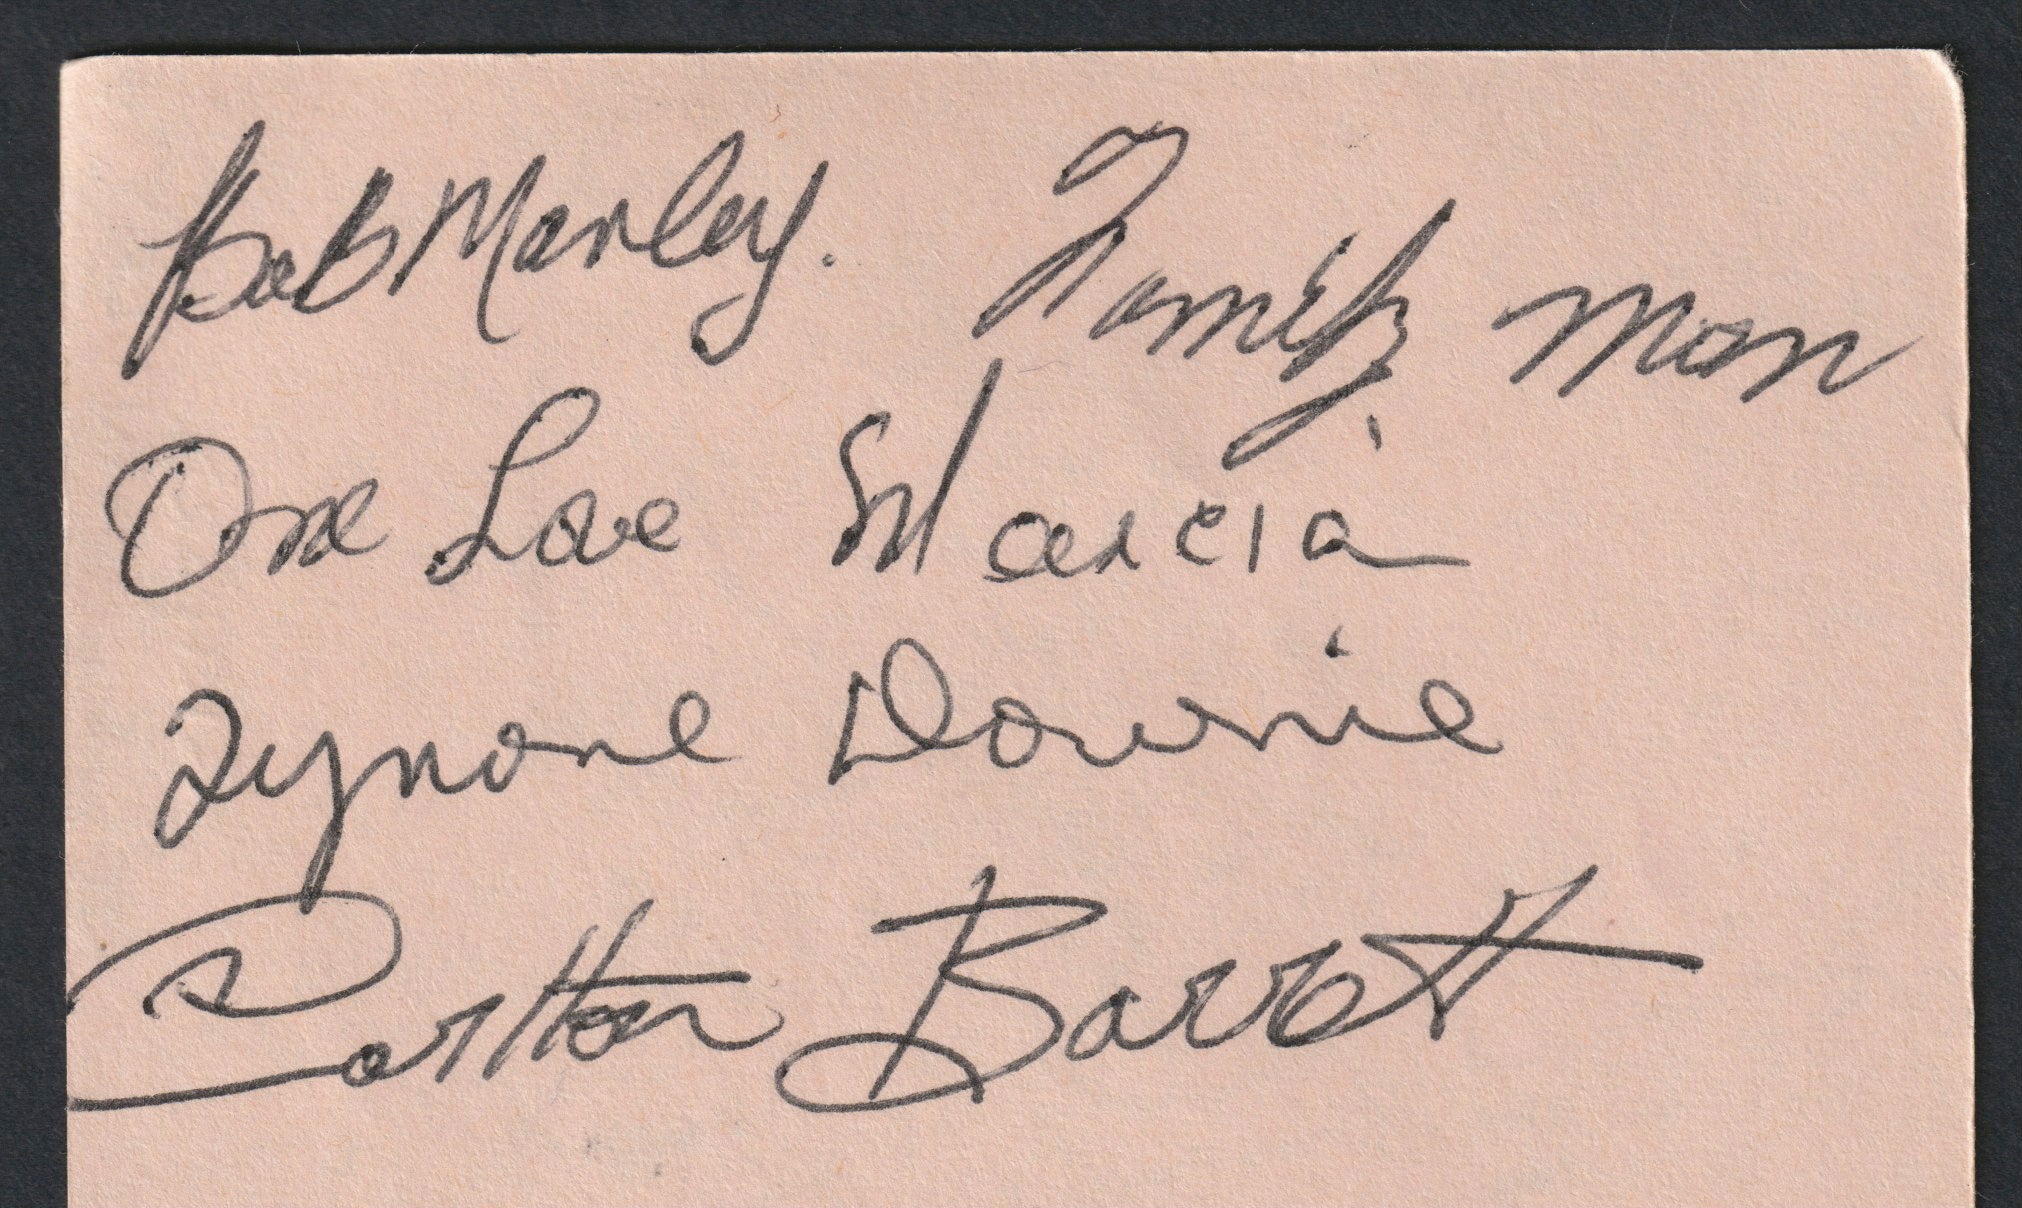 Bob Marley. Family Man
One Love Marcia
Tyrone Downie
Carlton Barrett